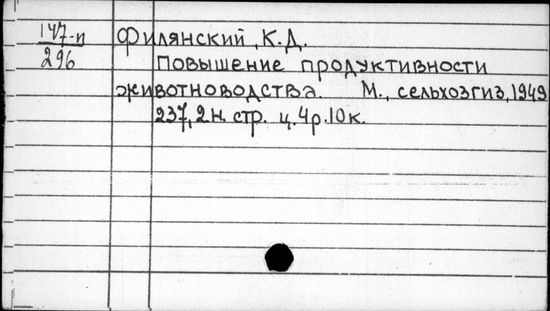 147-п
296
Филянский, К.Д.
Повышение продуктивности
животноводства. М., сельхозгиз, 1949
237, 2 н. стр. ц. 4 р. 10 к.